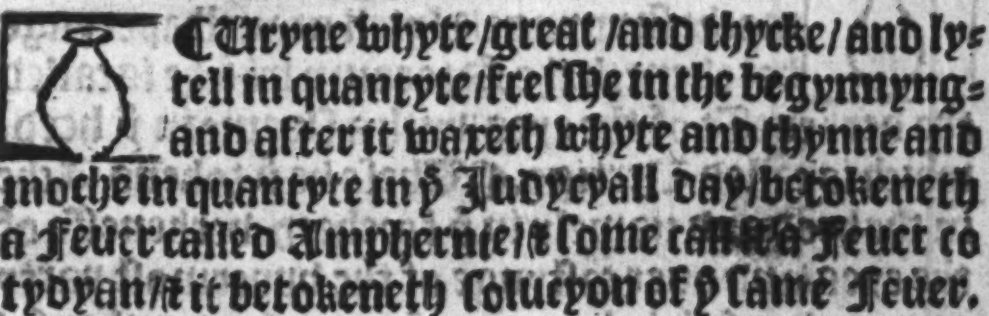 ¶ Uryne whyte/great/and thycke/and ly⸗
tell in quantyte/fresshe in the begynnyng⸗
and after it wareth whyte and thynne and
moche in quantyte in ẏ Judycyall day/betokeneth
a Feuer called Amphernie/& some call it a Feuer co
tydyan/& it betokeneth solucyon of ẏ same Feuer.